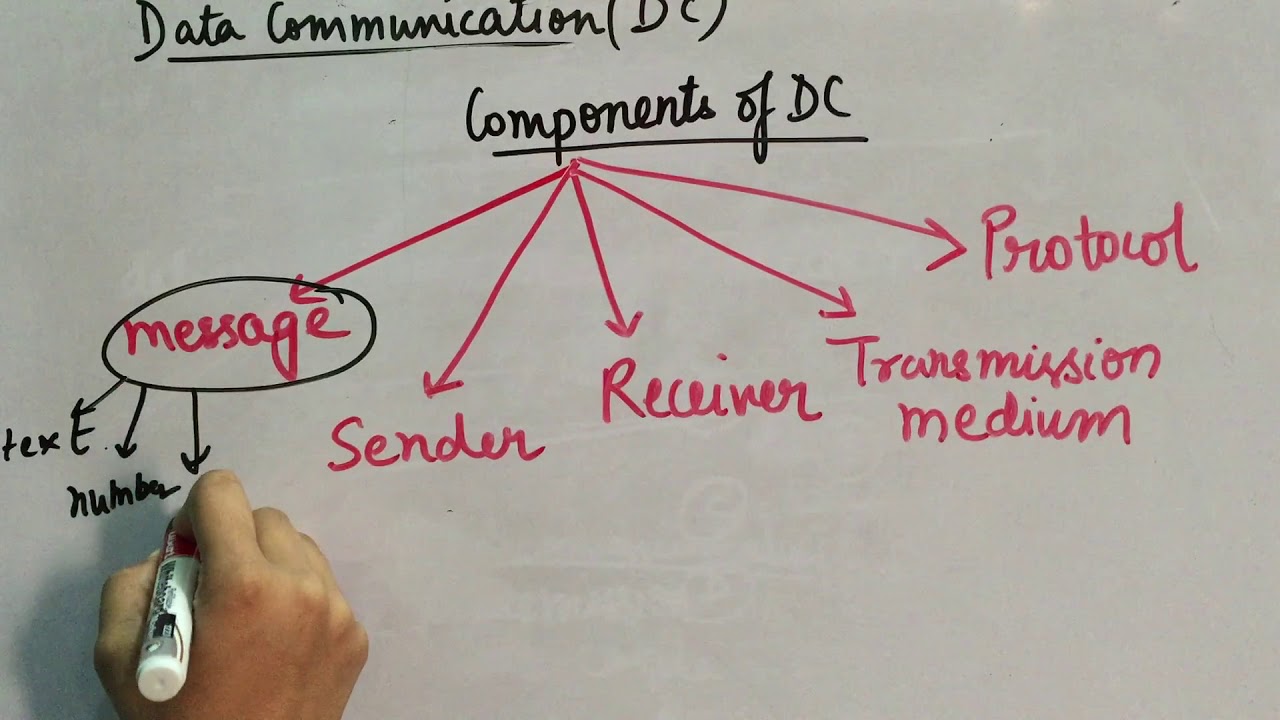 Data Communication (DC)
Components of DC
Protocol
message
Receiver
Transmission
medium
Sender
text.
number